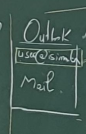 Outlook
user@gimail
Mail.